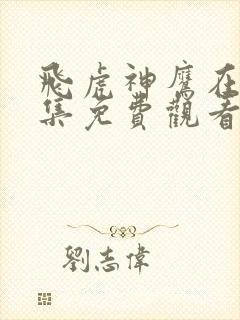 飛虎神鷹在
集免費觀看
劉志偉